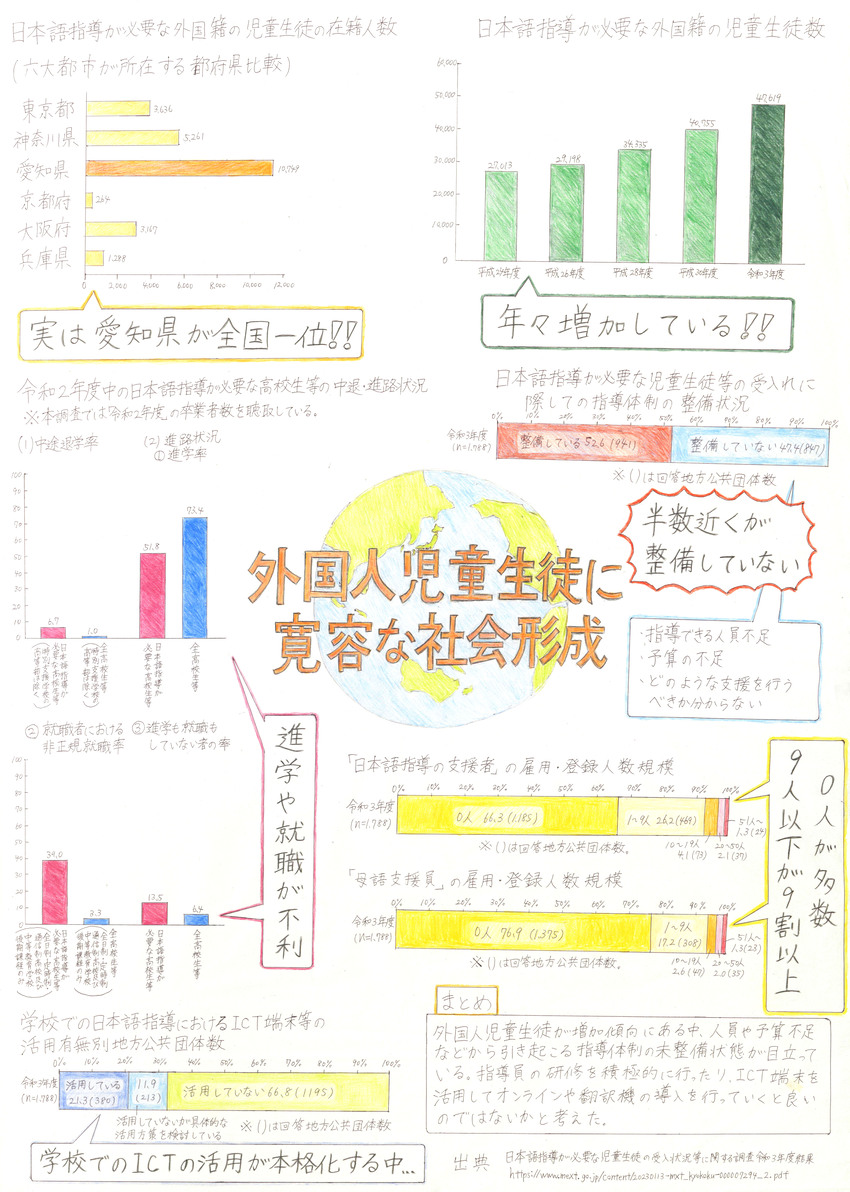 日本語指導が必要な外国籍の児童生徒の在籍人数
(六大都市が所在する都府県比較)
東京都
3,636
神奈川県
5,261
愛知県
10,749
京都府
264
大阪府
3,167
兵庫県
1,288
0 2,000 4,000 6,000 8,000 10,000 12,000
実は愛知県が全国一位!!
日本語指導が必要な外国籍の児童生徒数
60,000
50,000
40,000
30,000
20,000
10,000
0
27,013 29,198 34,335 40,755 47,619
平成24年度 平成26年度 平成28年度 平成30年度 令和3年度
年々増加している!!
令和2年度中の日本語指導が必要な高校生等の中退・進路状況
※本調査では「令和2年度」の卒業者数を聴取している。
(1)中途退学率
(2)進路状況
①進学率
100
90
80
70
60
50
40
30
20
10
0
6.7 1.0 51.8 73.4
日本語指導が
必要な高校生等
(特別支援学校の
高等部は除く)
全高校生等
(特別支援学校の
高等部は除く)
日本語指導が
必要な高校生等
全高校生等
②就職者における
非正規就職率
③進学も就職も
していない者の率
100
90
80
70
60
50
40
30
20
10
0
39.0 3.3 13.5 6.4
日本語指導が
必要な高校生等
全高校生等
日本語指導が
必要な高校生等
全高校生等
進学や就職が不利
日本語指導が必要な児童生徒等の受入れに
際しての指導体制の整備状況
0% 10% 20% 30% 40% 50% 60% 70% 80% 90% 100%
令和3年度
(n=1,788)
整備している52.6(941)
整備していない47.4(847)
※()は回答地方公共団体数
半数近くが
整備していない
・指導できる人員不足
・予算の不足
・どのような支援を行う
べきか分からない
外国人児童生徒に
寛容な社会形成
「日本語指導の支援者」の雇用・登録人数規模
0% 10% 20% 30% 40% 50% 60% 70% 80% 90% 100%
令和3年度
(n=1,788)
0人 66.3(1,185)
1~9人 26.2(469)
10~19人
4.1(73)
20~50人
2.1(37)
51人~
1.3(24)
※()は回答地方公共団体数。
「母語支援員」の雇用・登録人数規模
0% 10% 20% 30% 40% 50% 60% 70% 80% 90% 100%
令和3年度
(n=1,788)
0人 76.9(1,375)
1~9人
17.2(308)
10~19人
2.6(47)
20~50人
2.0(35)
51人~
1.3(23)
※()は回答地方公共団体数。
0人が多数
9人以下が9割以上
学校での日本語指導におけるICT端末等の
活用有無別地方公共団体数
0% 10% 20% 30% 40% 50% 60% 70% 80% 90% 100%
令和3年度
(n=1,788)
活用している
21.3(380)
11.9
(213)
活用していない66.8(1195)
活用していないが具体的な
活用方策を検討している
※()は回答地方公共団体数
学校でのICTの活用が本格化する中...
まとめ
外国人児童生徒が増加傾向にある中、人員や予算不足
などから引き起こる指導体制の未整備状態が目立って
いる。指導員の研修を積極的に行ったり、ICT端末を
活用してオンラインや翻訳機の導入を行っていくと良い
のではないかと考えた。
出典 日本語指導が必要な児童生徒の受入状況等に関する調査令和3年度結果
https://www.mext.go.jp/content/20230113-mxt_kyokoku-000007294_2.pdf